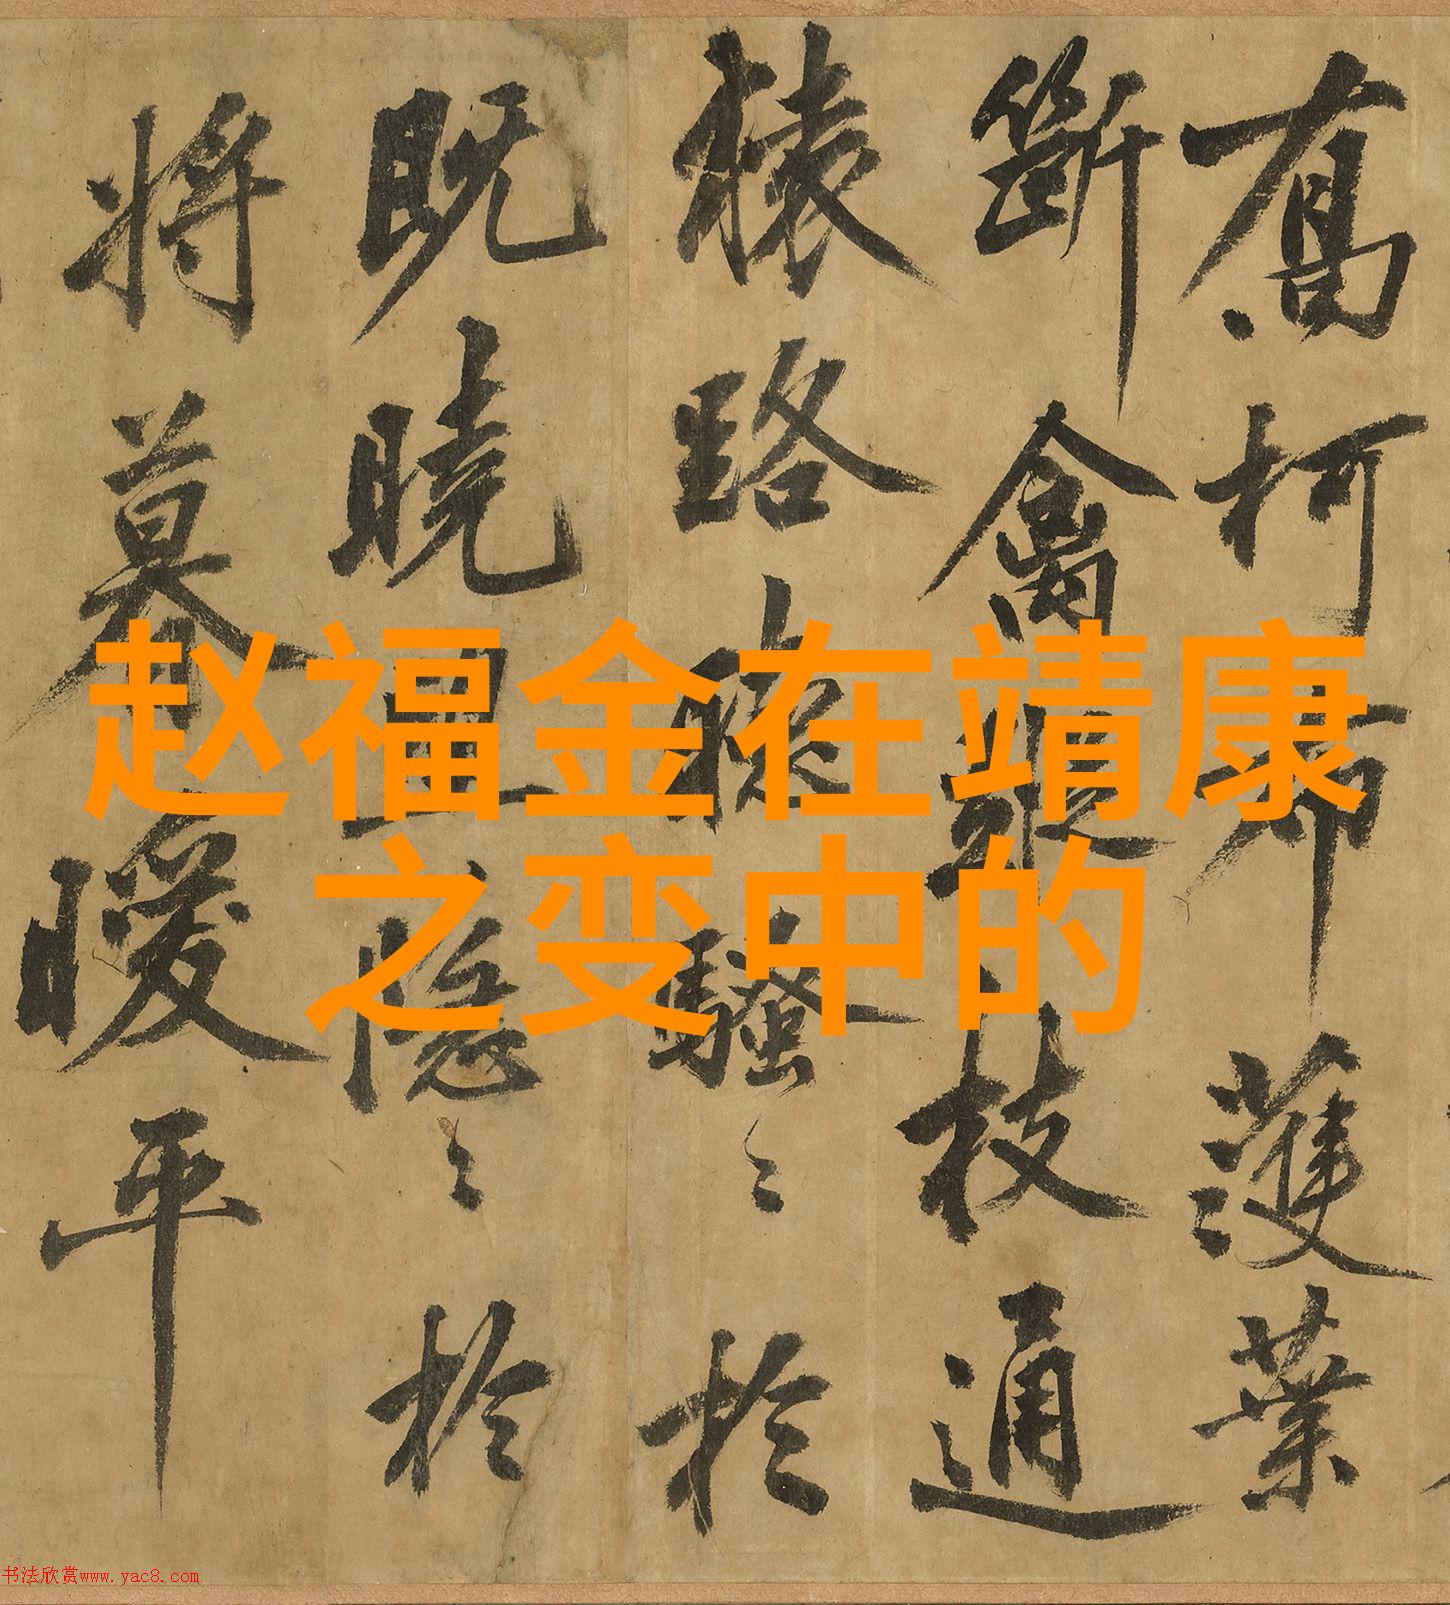 喬柯護葉
斷禽蹤枝通
猿路聽騷〻於
既曉隱〻於
將暮曖平
赵福金在靖康
之变中的
书法欣赏www.yac8.com